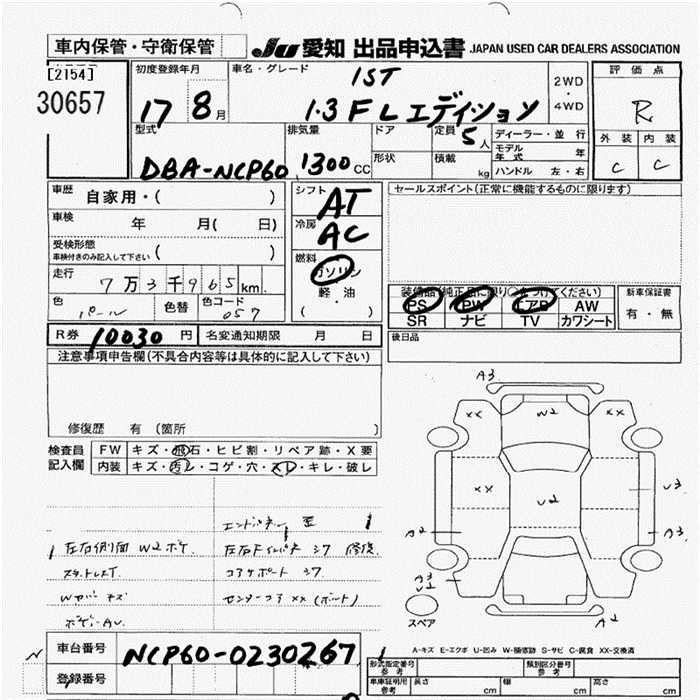 車内保管・守衛保管
JU 愛知 出品申込書 JAPAN USED CAR DEALERS ASSOCIATION
[2154]
30657
初度登録年月
17 8月
車名・グレード
IST
1.3 F Lエディション
2WD
・
4WD
評価点
R
外装 内装
C C
型式
DBA-NCP60
排気量
1300CC
ドア
形状
定員 5人
積載 kg
ディーラー・並行
モデル年式 年
ハンドル 左・右
車歴 自家用・( )
車検 年 月( 日)
受検形態
車検付きのみ記入して下さい ( )
走行 7万3千965km
色 パール 色替 色コード 057
シフト AT
冷房 AC
燃料
ガソリン
軽・油
( ・ )
セールスポイント(正常に機能するものに限ります)
装備品(純正品に限り○をつけてください)
PS PW エアB AW
SR ナビ TV カワシート
新車保証書
有・無
R券 10030円 名変通知期限 月 日
後日品
注意事項申告欄(不具合内容等は具体的に記入して下さい)
修復歴 有 (箇所
検査員記入欄
FW キズ・飛石・ヒビ割・リペア跡・X要
内装 キズ・汚レ・コゲ・穴・スレ・キレ・破レ
左右側面 W2ボケ
ボデーAU
コアサポート シワ
センターコア XX (ボルト)
A3
XX W2 XX
XX U2 U3
A2 A3
A3
U2
A2
スペア
A-キズ E-エクボ U-凹み W-補修跡 S-サビ C-腐食 XX-交換済
車台番号 NCP60-0230267
登録番号
形式指定番号 参考
類別区分番号 参考
車庫証明用 参考 長さ cm 幅 cm 高さ cm